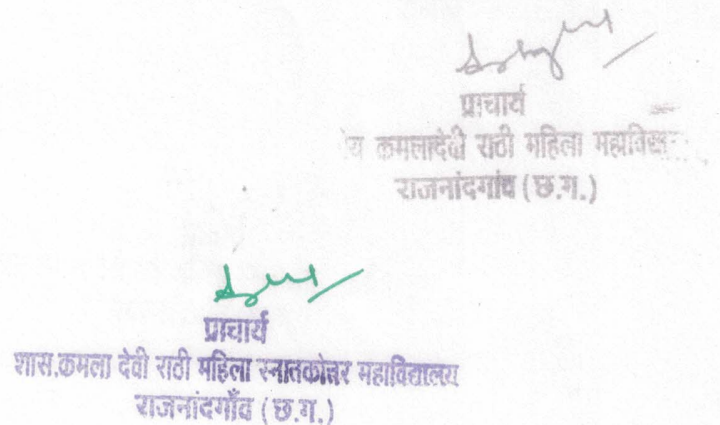 प्राचार्य
कमलादेवी राठी महिला
राजनांदगांव (छ.ग.)
प्राचार्य
शास.कमला देवी राठी महिला स्नातकोत्तर महाविद्यालय
राजनांदगाँव (छ.ग.)